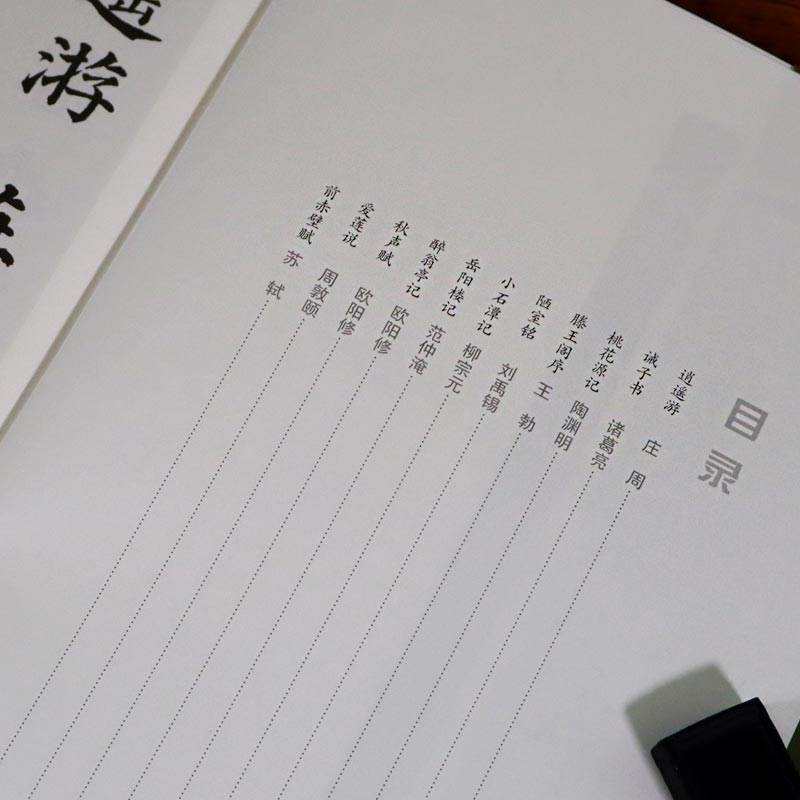 目录
逍遥游 庄周
诫子书 诸葛亮
桃花源记 陶渊明
滕王阁序 王勃
陋室铭 刘禹锡
小石潭记 柳宗元
岳阳楼记 范仲淹
醉翁亭记 欧阳修
秋声赋 欧阳修
爱莲说 周敦颐
前赤壁赋 苏轼
遥游